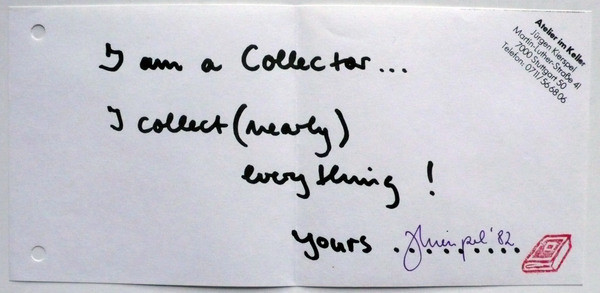 I am a Collector...
I collect (nearly)
everything !
yours .........
Atelier im Keller
Jürgen Kierspel
Martin-Luther-Straße 41
7000 Stuttgart 50
Telefon: 0711/56 68 06
'82